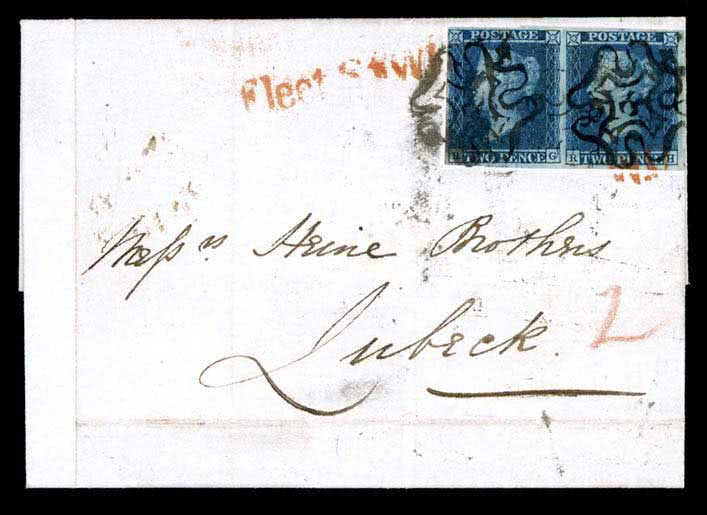 POSTAGE POSTAGE
Fleet St
G R H
TWO PENCE TWO PENCE
Messrs Heine Brothers
Lubeck.